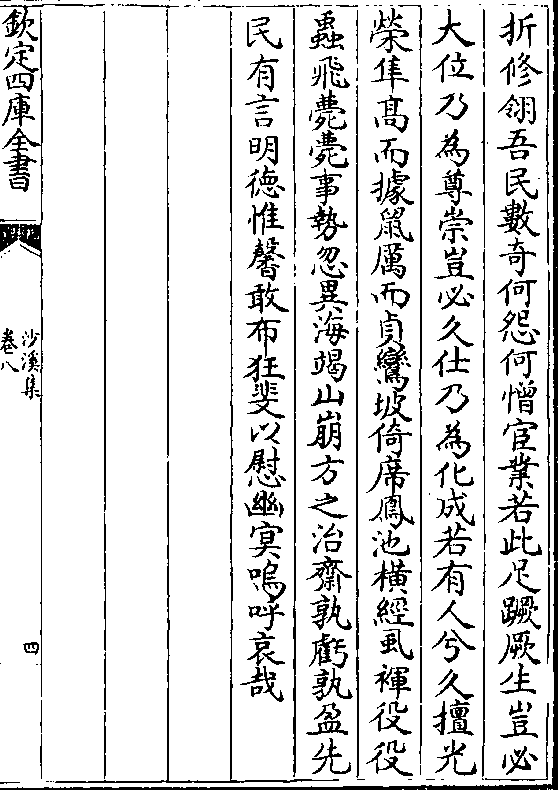 折修翎吾民數奇何怨何憎宦業若此足蹶厥生豈必
大位乃為尊崇豈必久仕乃為化成若有人兮久擅光
榮隼髙而據鼠厲而貞鸞坡倚席鳳池橫經虱褌役役
蟲飛薨薨事勢忽異海竭山崩方之治齋孰虧孰盈先
民有言明德惟馨敢布狂斐以慰幽冥嗚呼哀哉
欽定四庫全書
沙溪集
卷八
四